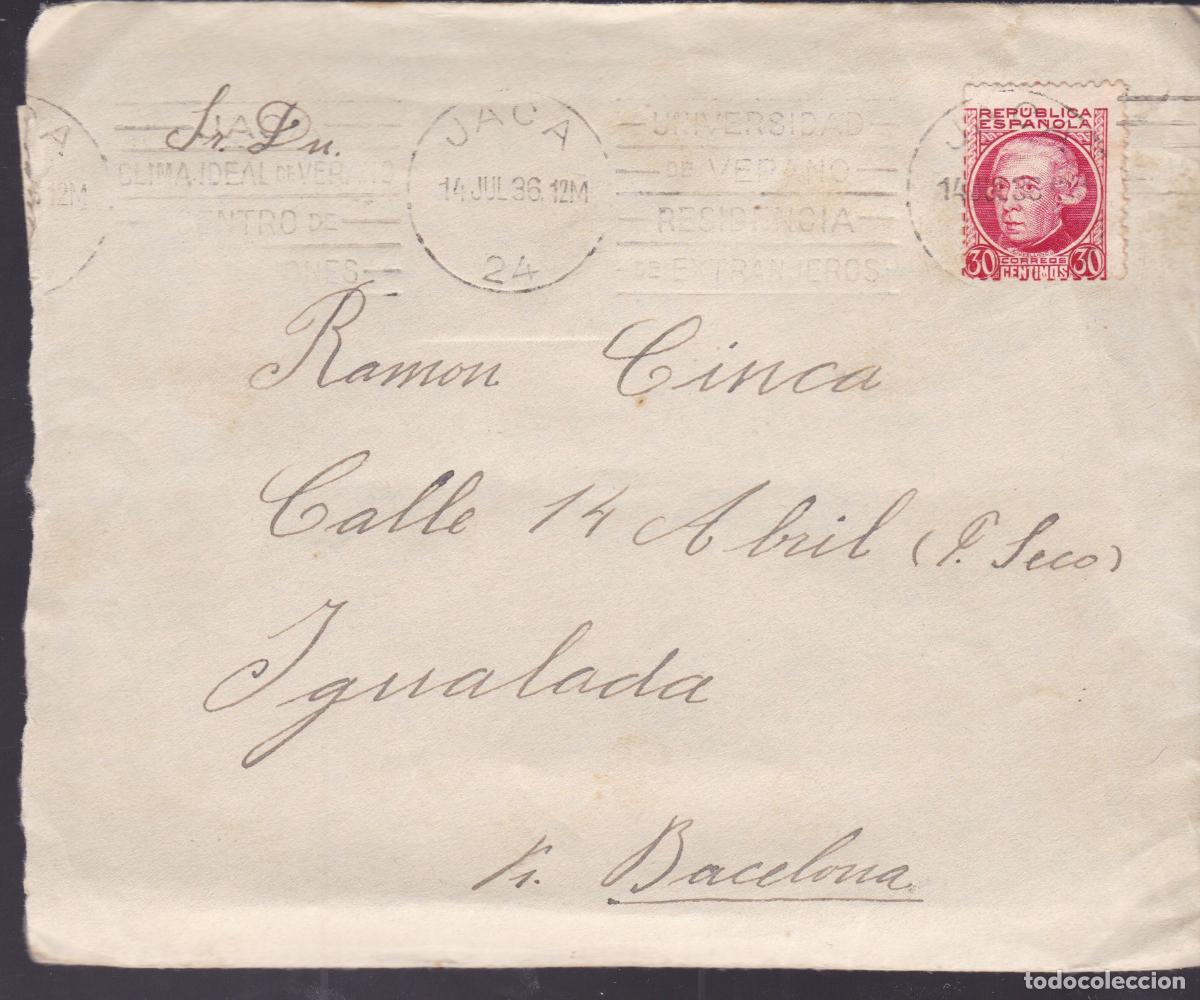 Sr. Dn.
JACA
CLIMA IDEAL DE VERANO
CENTRO DE
ES
12M
JACA
14 JUL 36. 12M
24
UNIVERSIDAD
DE VERANO
RESIDENCIA
DE EXTRANJEROS
14 JUL 36
REPÚBLICA
ESPAÑOLA
CORREOS
30 CENTIMOS 30
Ramon Cinca
Calle 14 Abril (P. Seco)
Igualada
Bacelona
todocoleccion